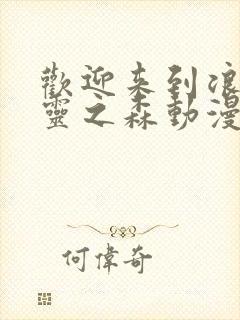 歡迎来到浪
靈之森動漫
何偉奇